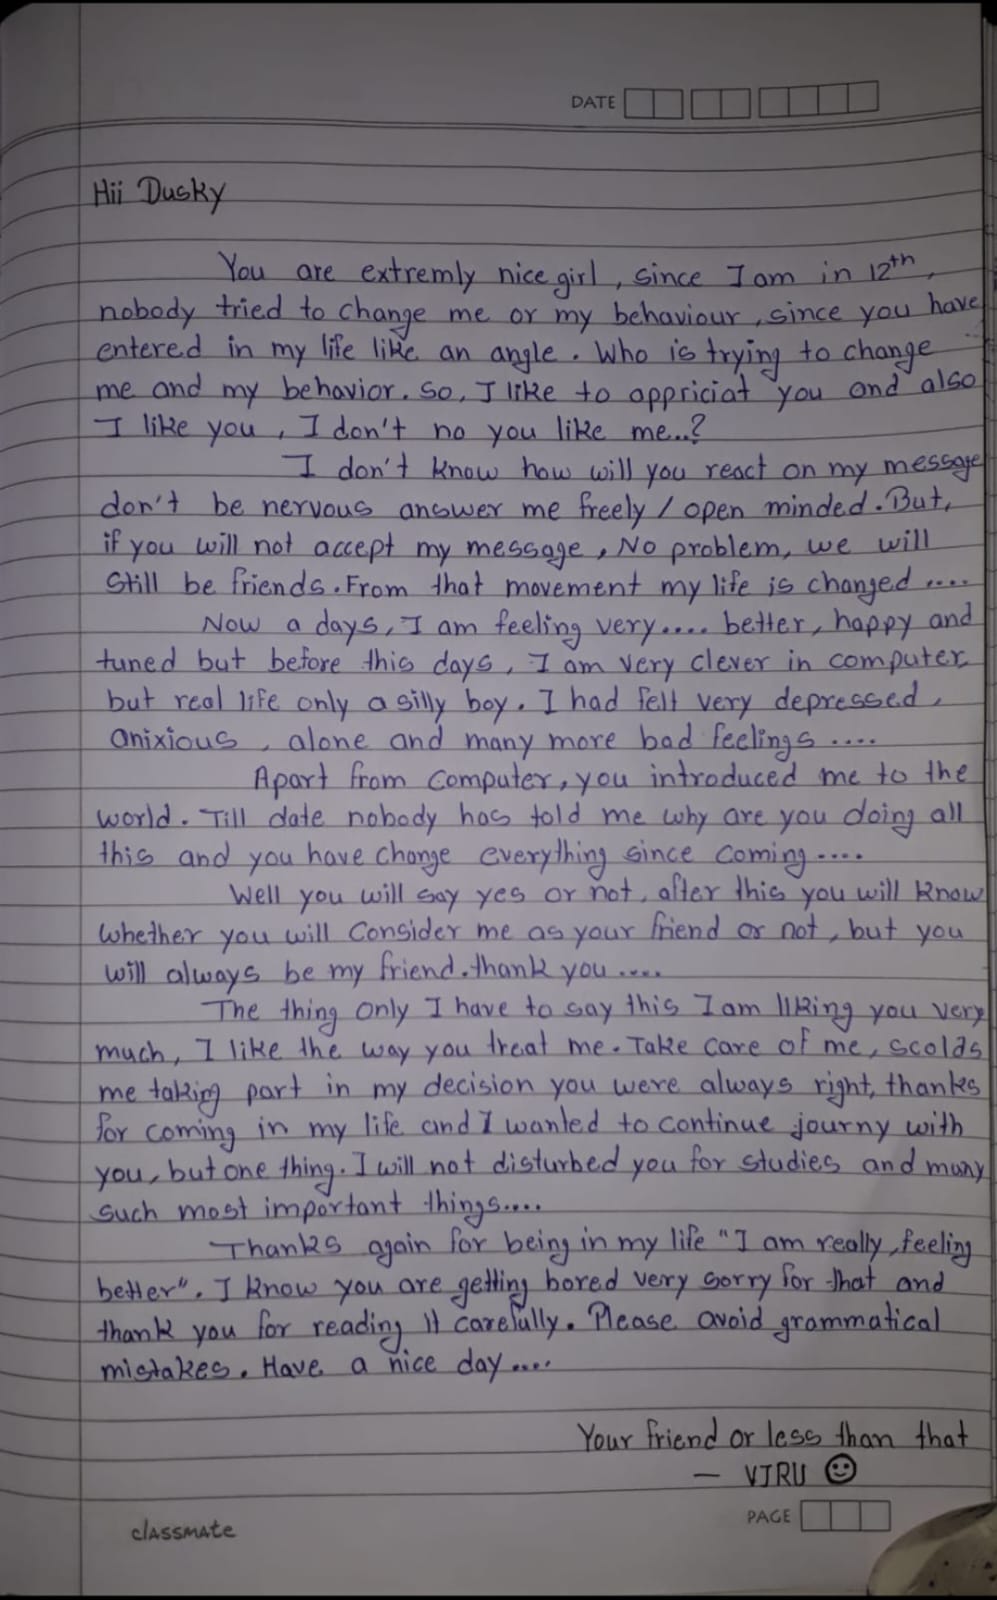 DATE
Hii Dusky
You are extremly nice girl, since I am in 12th,
nobody tried to change me or my behaviour, since you have
entered in my life like an angle. Who is trying to change
me and my behavior. so, I like to appriciat you and also
I like you, I don't no you like me..?
I don't know how will you react on my message
don't be nervous answer me freely / open minded. But,
if you will not accept my message, No problem, we will
Still be friends. From that movement my life is changed ....
Now a days, I am feeling very.... better, happy and
tuned but before this days, I am very clever in computer
but real life only a silly boy. I had felt very depressed,
anixious, alone and many more bad feelings ....
Apart from computer, you introduced me to the
world. Till date nobody has told me why are you doing all
this and you have change everything since coming ....
Well you will say yes or not, after this you will know
whether you will consider me as your friend or not, but you
will always be my friend. thank you ....
The thing only I have to say this I am liking you very
much, I like the way you treat me. Take care of me, scolds
me taking part in my decision you were always right, thanks
for coming in my life and I wanted to continue journy with
you, but one thing. I will not disturbed you for studies and many
such most important things....
Thanks again for being in my life "I am really, feeling
better". I know you are getting bored very sorry for that and
thank you for reading it carefully. Please avoid grammatical
mistakes. Have a nice day ....
Your friend or less than that
— VIRU ☺
classmate
PAGE